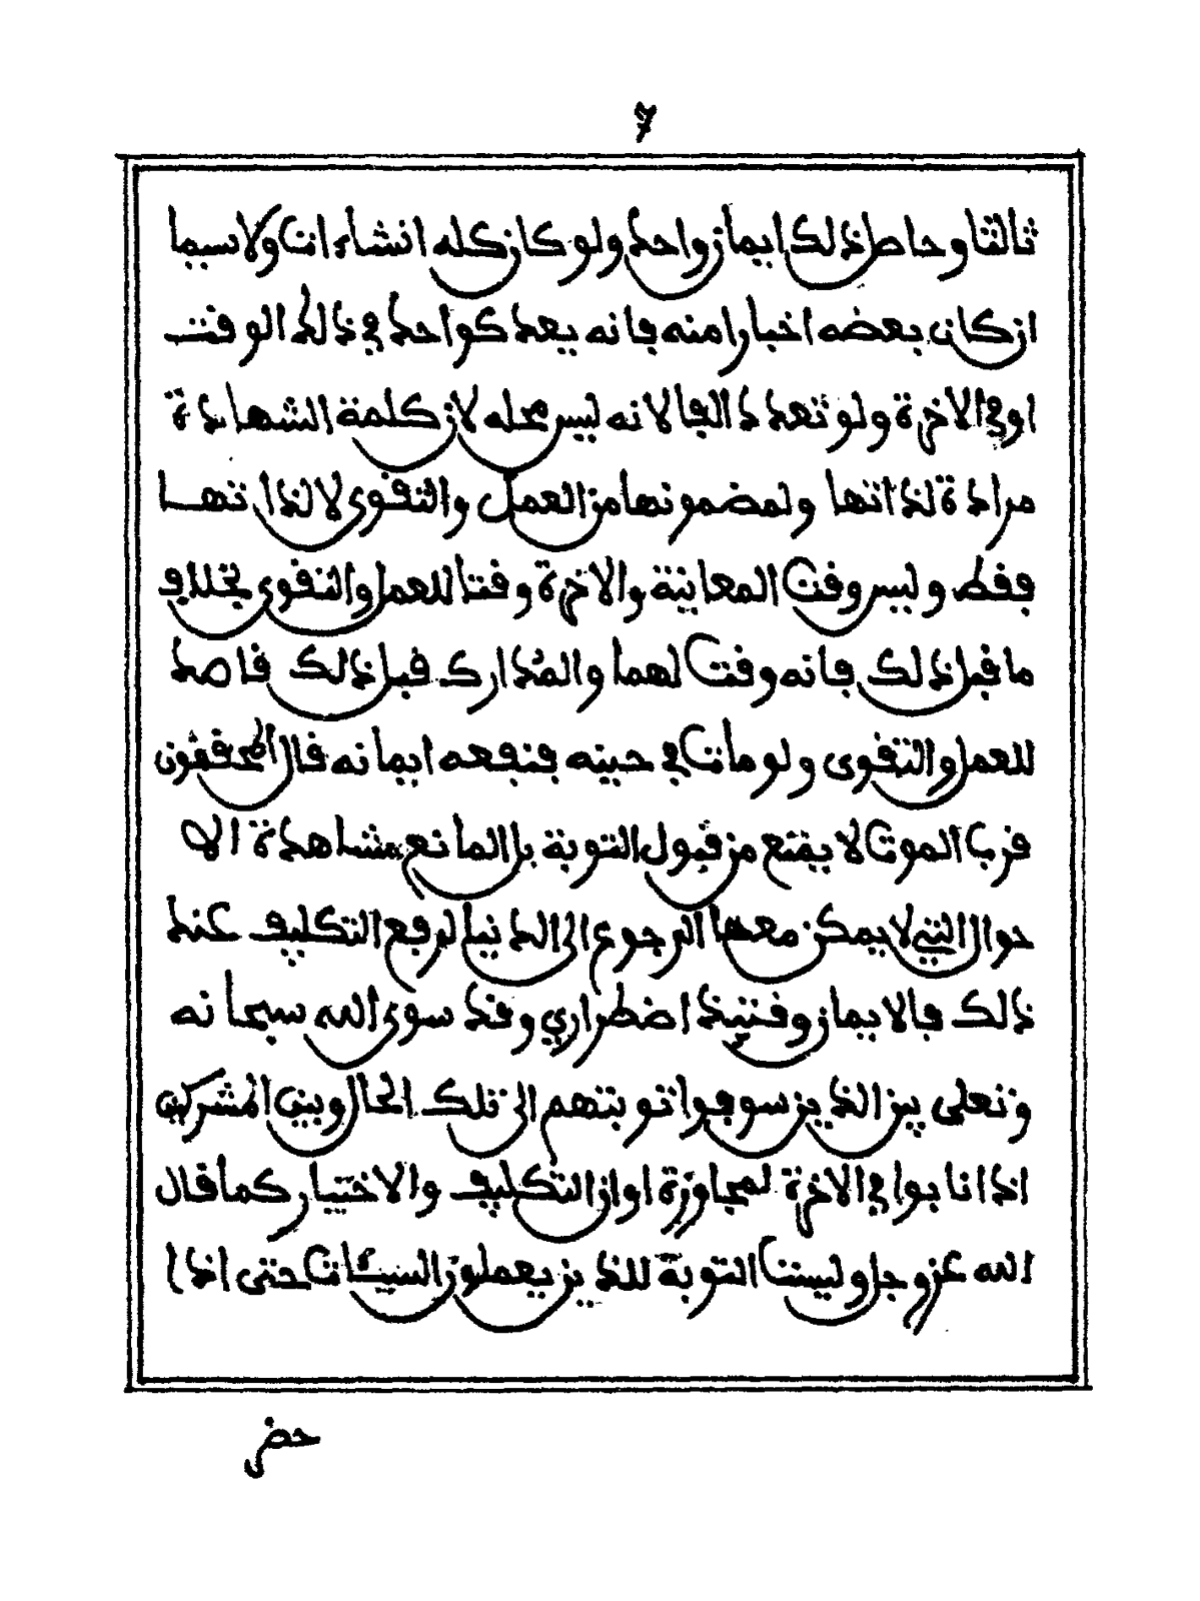 7
ثالثا وحاصل ذلك ايمان واحد ولو كان كله انشاءات ولا سيما
ان كان بعضه اخبارا منه فانه يعد كواحد في ذلك الوقت
او في الاخرة ولو تعدد الفا لانه ليس محله لان كلمة الشهادة
مرادة لذاتها ولمضمونها من العمل والتقوى لا لذاتها
فقط وليس وقت المعاينة والاخرة وقتا للعمل والتقوى بخلاف
ما قبل ذلك فانه وقت لهما والمدارك قبل ذلك قاصد
للعمل والتقوى ولو مات في حينه فنفعه ايمانه قال المحققون
قرب الموت لا يمنع من قبول التوبة بل المانع مشاهدة الا
حوال التي لا يمكن معها الرجوع الى الدنيا لرفع التكليف عند
ذلك فالايمان وقتئذ اضطراري وقد سوى الله سبحانه
وتعلى بين الذين سوفوا توبتهم الى تلك الحال وبين المشركين
اذا انابوا في الاخرة لمجاوزة اوان التكليف والاختيار كما قال
الله عز وجل وليست التوبة للذين يعملون السيئات حتى اذا
حضر